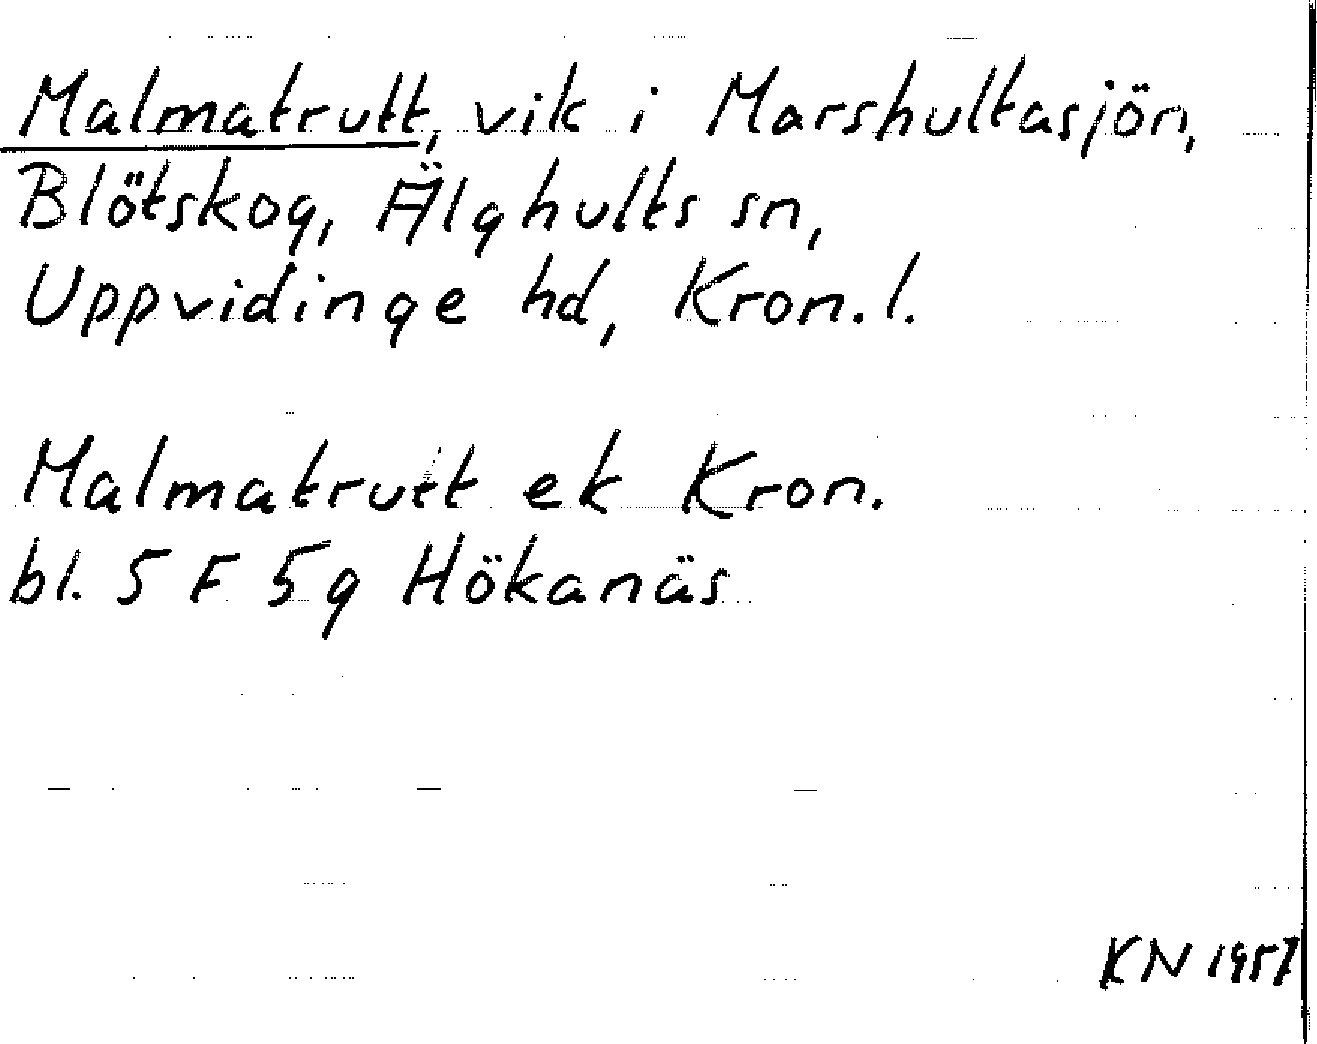 Malmatrutt, vik i Marshultasjön,
Blötskog, Älghults sn,
Uppvidinge hd, Kron. l.
Malmatrutt ek Kron.
bl. 5 F 5g Hökanäs
KN 1957